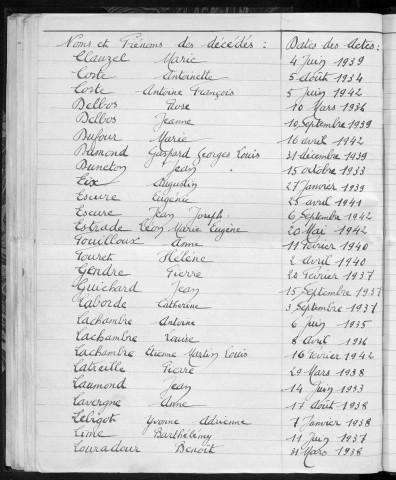 Noms et Prénoms des décédés : Dates des Actes :
Clauzel Marie 4 Juin 1939
Coste Antoinette 5 Août 1934
Coste Antoine François 5 Juin 1942
Delbos Rose 10 Mars 1936
Delbos Jeanne 10 Septembre 1939
Dufour Marie 16 avril 1942
Dumond Gaspard Georges Louis 31 décembre 1939
Duneton Jean 15 octobre 1933
Eix Augustin 27 Janvier 1939
Escure Eugénie 25 avril 1941
Escure Jean Joseph 6 Septembre 1942
Estrade Léon Marie Eugène 20 Mai 1942
Fouilloux Anne 11 Février 1940
Fouret Hélène 2 avril 1940
Gendre Pierre 20 Février 1937
Guichard Jean 15 Septembre 1937
Laborde Catherine 3 Septembre 1937
Lachambre Antoine 6 Juin 1935
Lachambre Louise 8 avril 1936
Lachambre Etienne Martin Louis 16 Février 1942
Latreille Pierre 29 Mars 1938
Laumond Jean 14 Juin 1933
Lavergne Anne 17 août 1938
Lebigot Yvonne Adrienne 7 Janvier 1938
Lime Barthélémy 11 Juin 1937
Louradour Benoit 31 Mars 1938